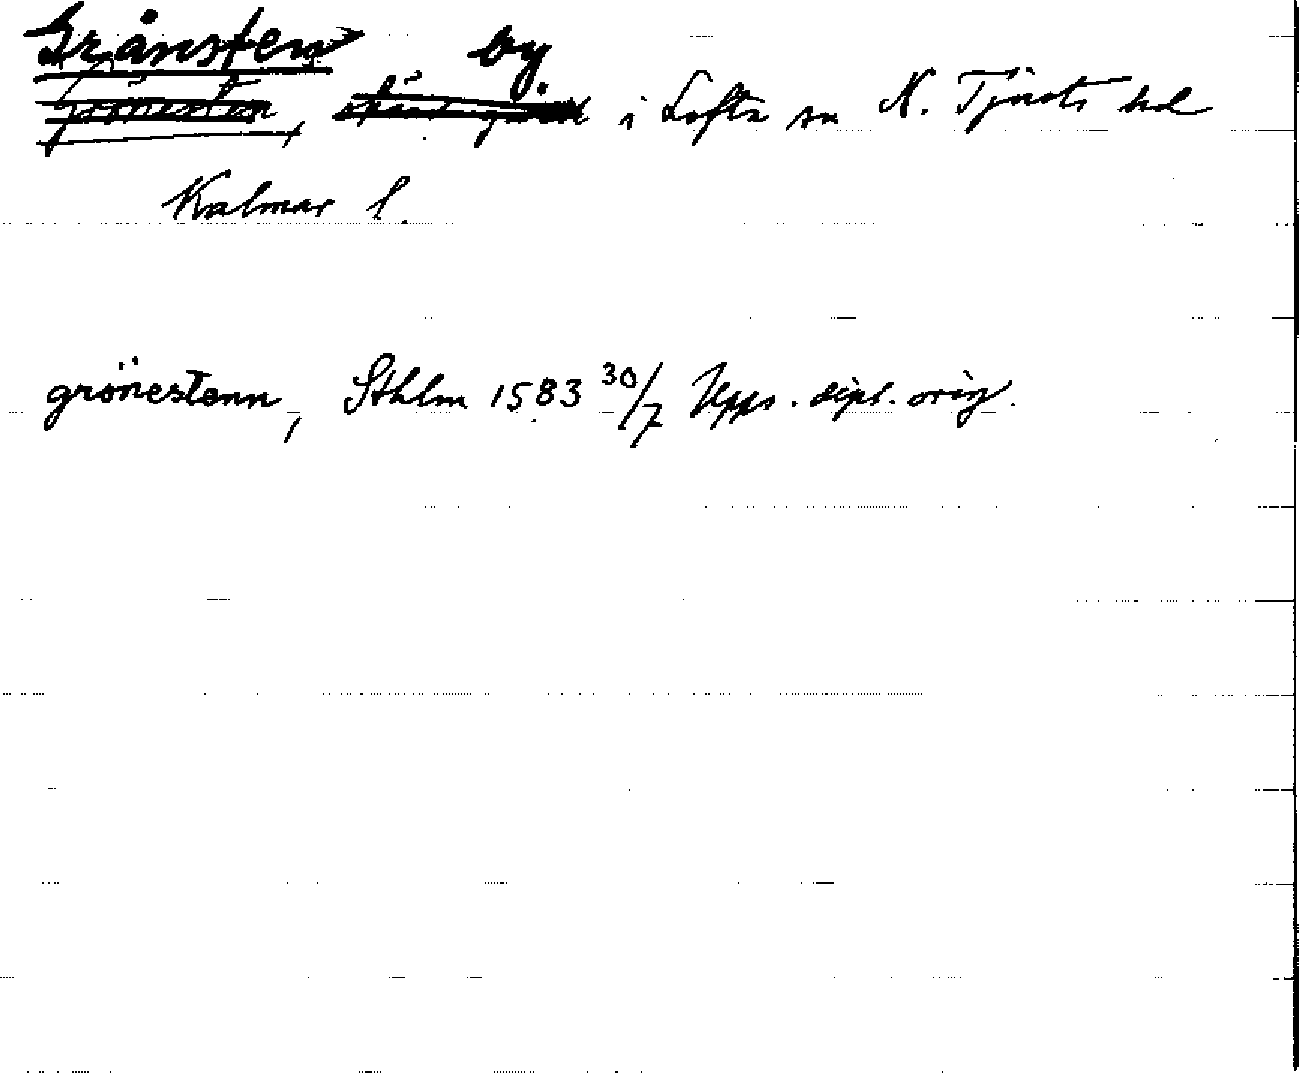 Grånsten by.
Grönesten, i Lofta sn N. Tjusts hd
Kalmar l.
grönestenn, Sthlm 1583 30/7 Upps. dipl. orig.